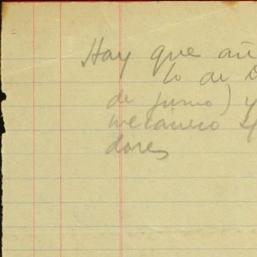 Hay que añ
lo de D
de junio) y
mecánico
dores